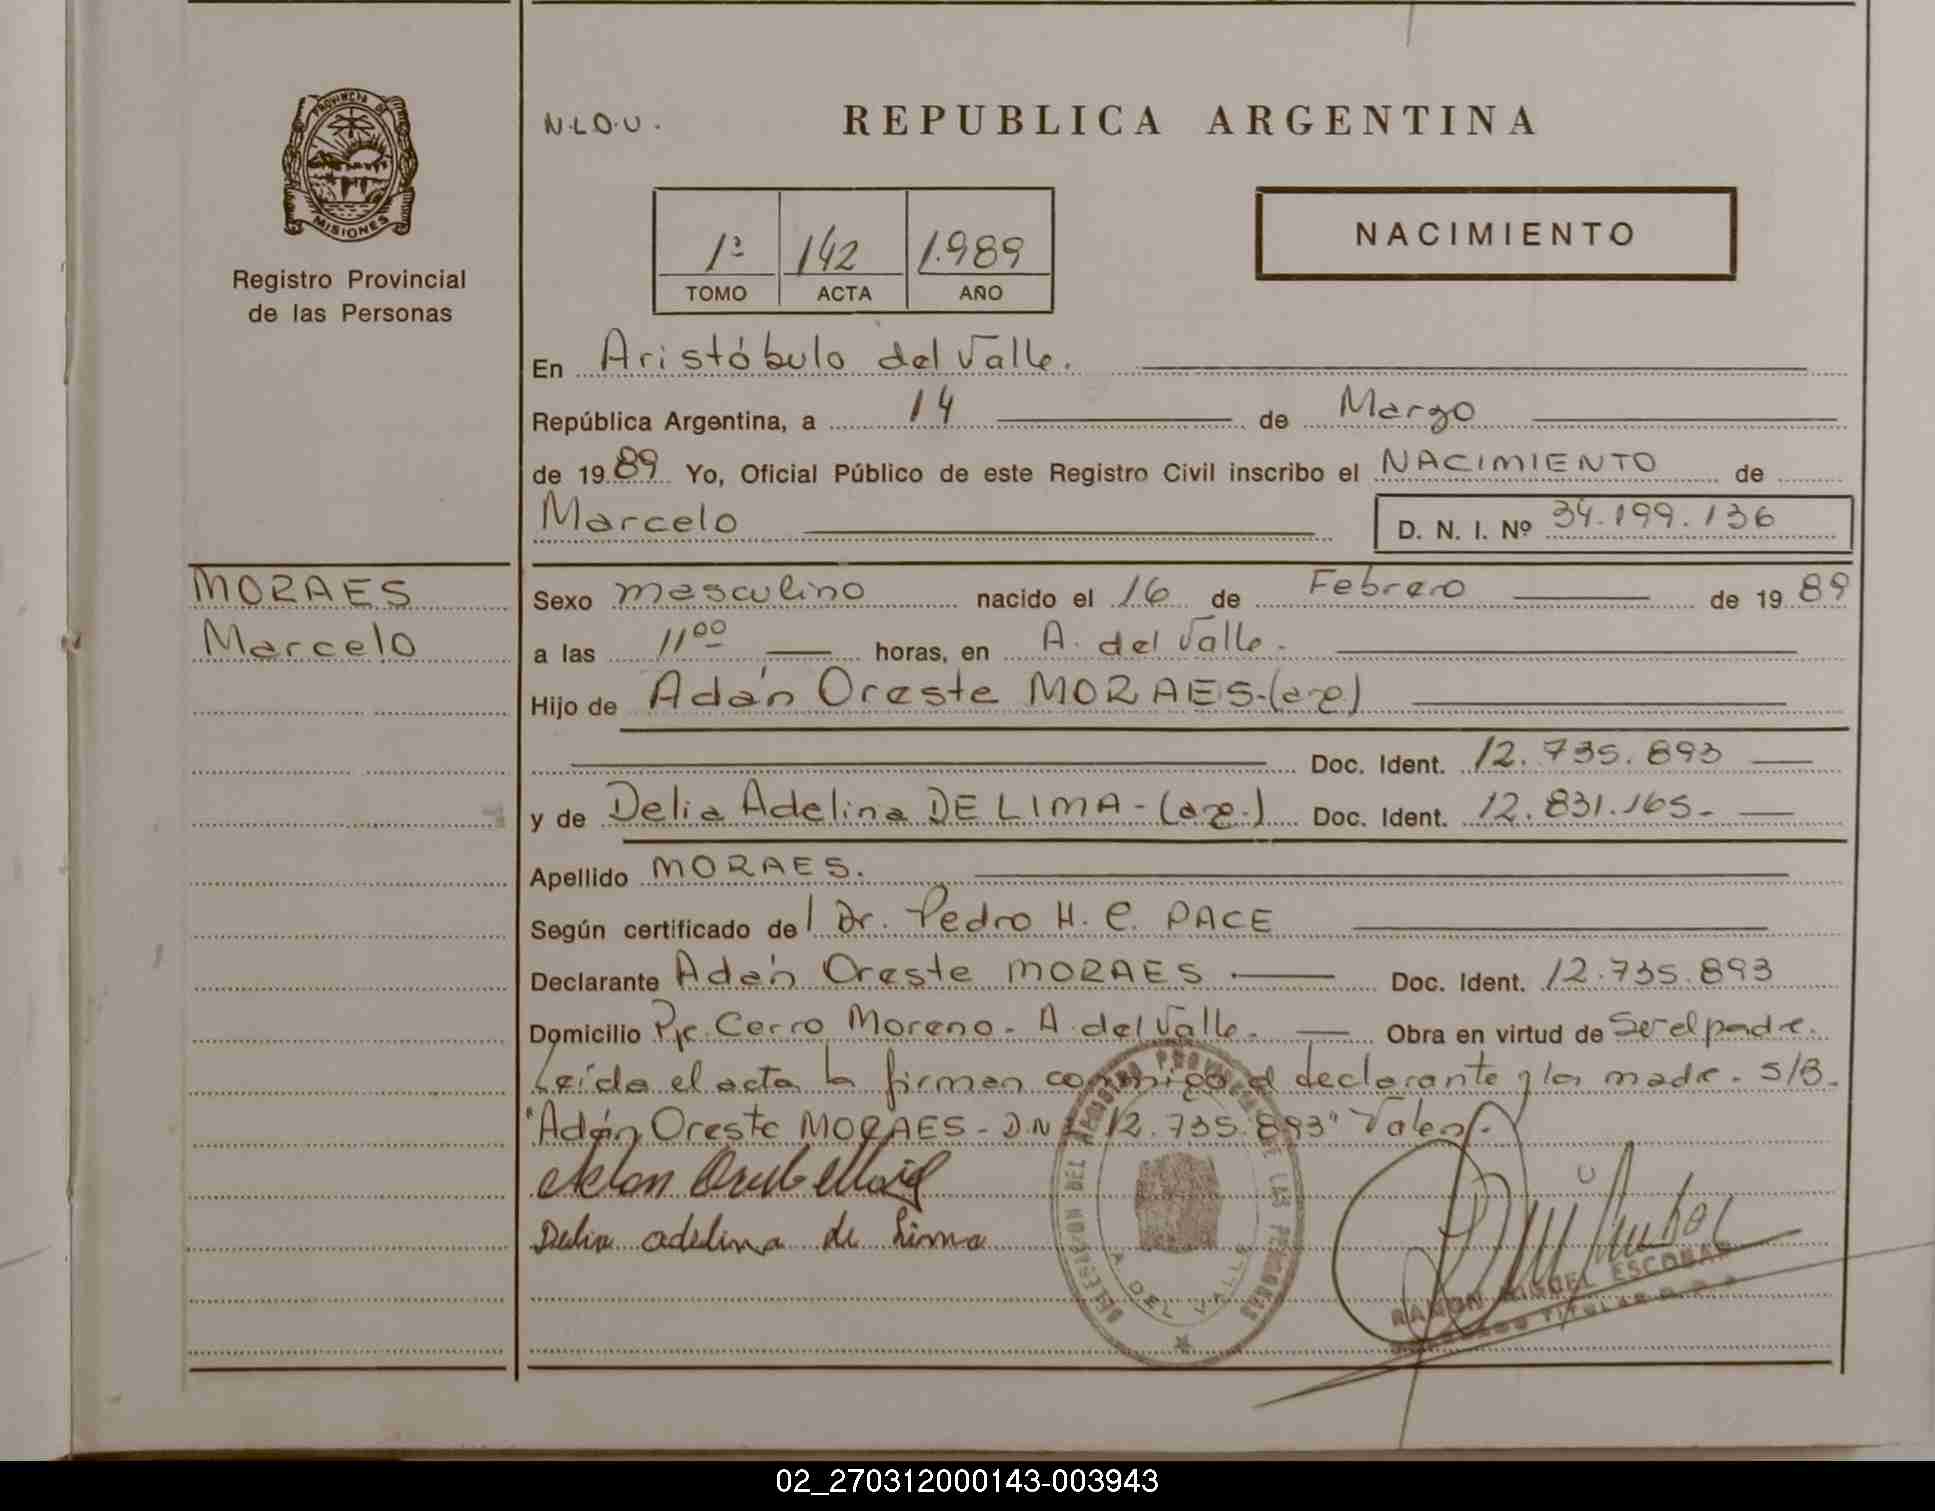 PROVINCIA DE
MISIONES
Registro Provincial
de las Personas
N.L.O.U.
REPUBLICA ARGENTINA
1º 142 1.989
TOMO ACTA AÑO
NACIMIENTO
En Aristóbulo del Valle.
República Argentina, a 14 de Marzo
de 1989 Yo, Oficial Público de este Registro Civil inscribo el NACIMIENTO de
Marcelo D. N. I. Nº 34.199.136
MORAES
Marcelo
Sexo masculino nacido el 16 de Febrero de 1989
a las 11 00 horas, en A. del Valle.
Hijo de Adán Oreste MORAES-(arg)
Doc. Ident. 12.735.893
y de Delia Adelina DE LIMA-(arg.) Doc. Ident. 12.831.165-
Apellido MORAES.
Según certificado del Dr. Pedro H. C. PACE
Declarante Adán Oreste MORAES Doc. Ident. 12.735.893
Domicilio Pje. Cerro Moreno- A. del Valle. Obra en virtud de Ser el padre.
Leída el acta la firman conmigo el declarante y la madre. S/B.
"Adán Oreste MORAES- DNI 12.735.893" Valen.
Delia adelina de Lima
DELEGACION DEL REGISTRO PROVINCIAL DE LAS PERSONAS
A. DEL VALLE
RAMON MIGUEL ESCOBAR
DELEGADO TITULAR
02_270312000143-003943